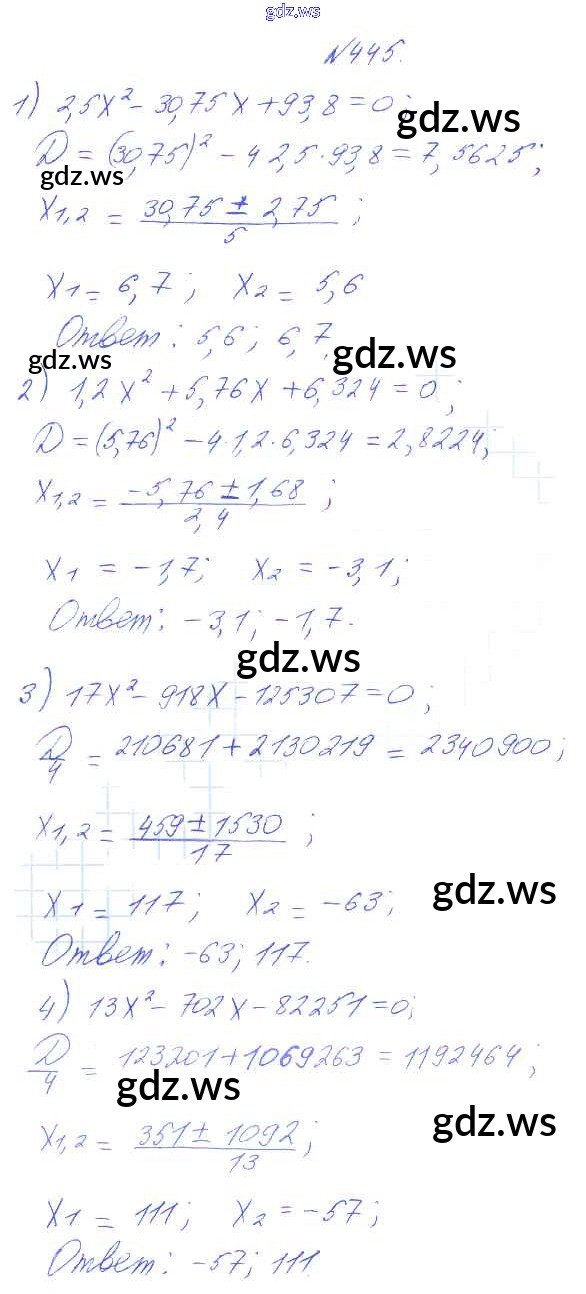 gdz.ws
№445.
1) 2,5x² - 30,75x + 93,8 = 0;
gdz.ws
D = (30,75)² - 4 2,5·93,8 = 7,5625;
gdz.ws
x₁,₂ = (30,75 ± 2,75)/5;
x₁ = 6,7; x₂ = 5,6
Ответ: 5,6; 6,7.
gdz.ws gdz.ws
2) 1,2x² + 5,76x + 6,324 = 0;
D = (5,76)² - 4·1,2·6,324 = 2,8224;
x₁,₂ = (-5,76 ± 1,68)/2,4;
x₁ = -1,7; x₂ = -3,1;
Ответ: -3,1; -1,7.
gdz.ws
3) 17x² - 918x - 125307 = 0;
D/4 = 210681 + 2130219 = 2340900;
x₁,₂ = (459 ± 1530)/17;
x₁ = 117; x₂ = -63;
gdz.ws
Ответ: -63; 117.
4) 13x² - 702x - 82251 = 0;
D/4 = 123201 + 1069263 = 1192464;
gdz.ws
x₁,₂ = (351 ± 1092)/13;
gdz.ws
x₁ = 111; x₂ = -57;
gdz.ws
Ответ: -57; 111.